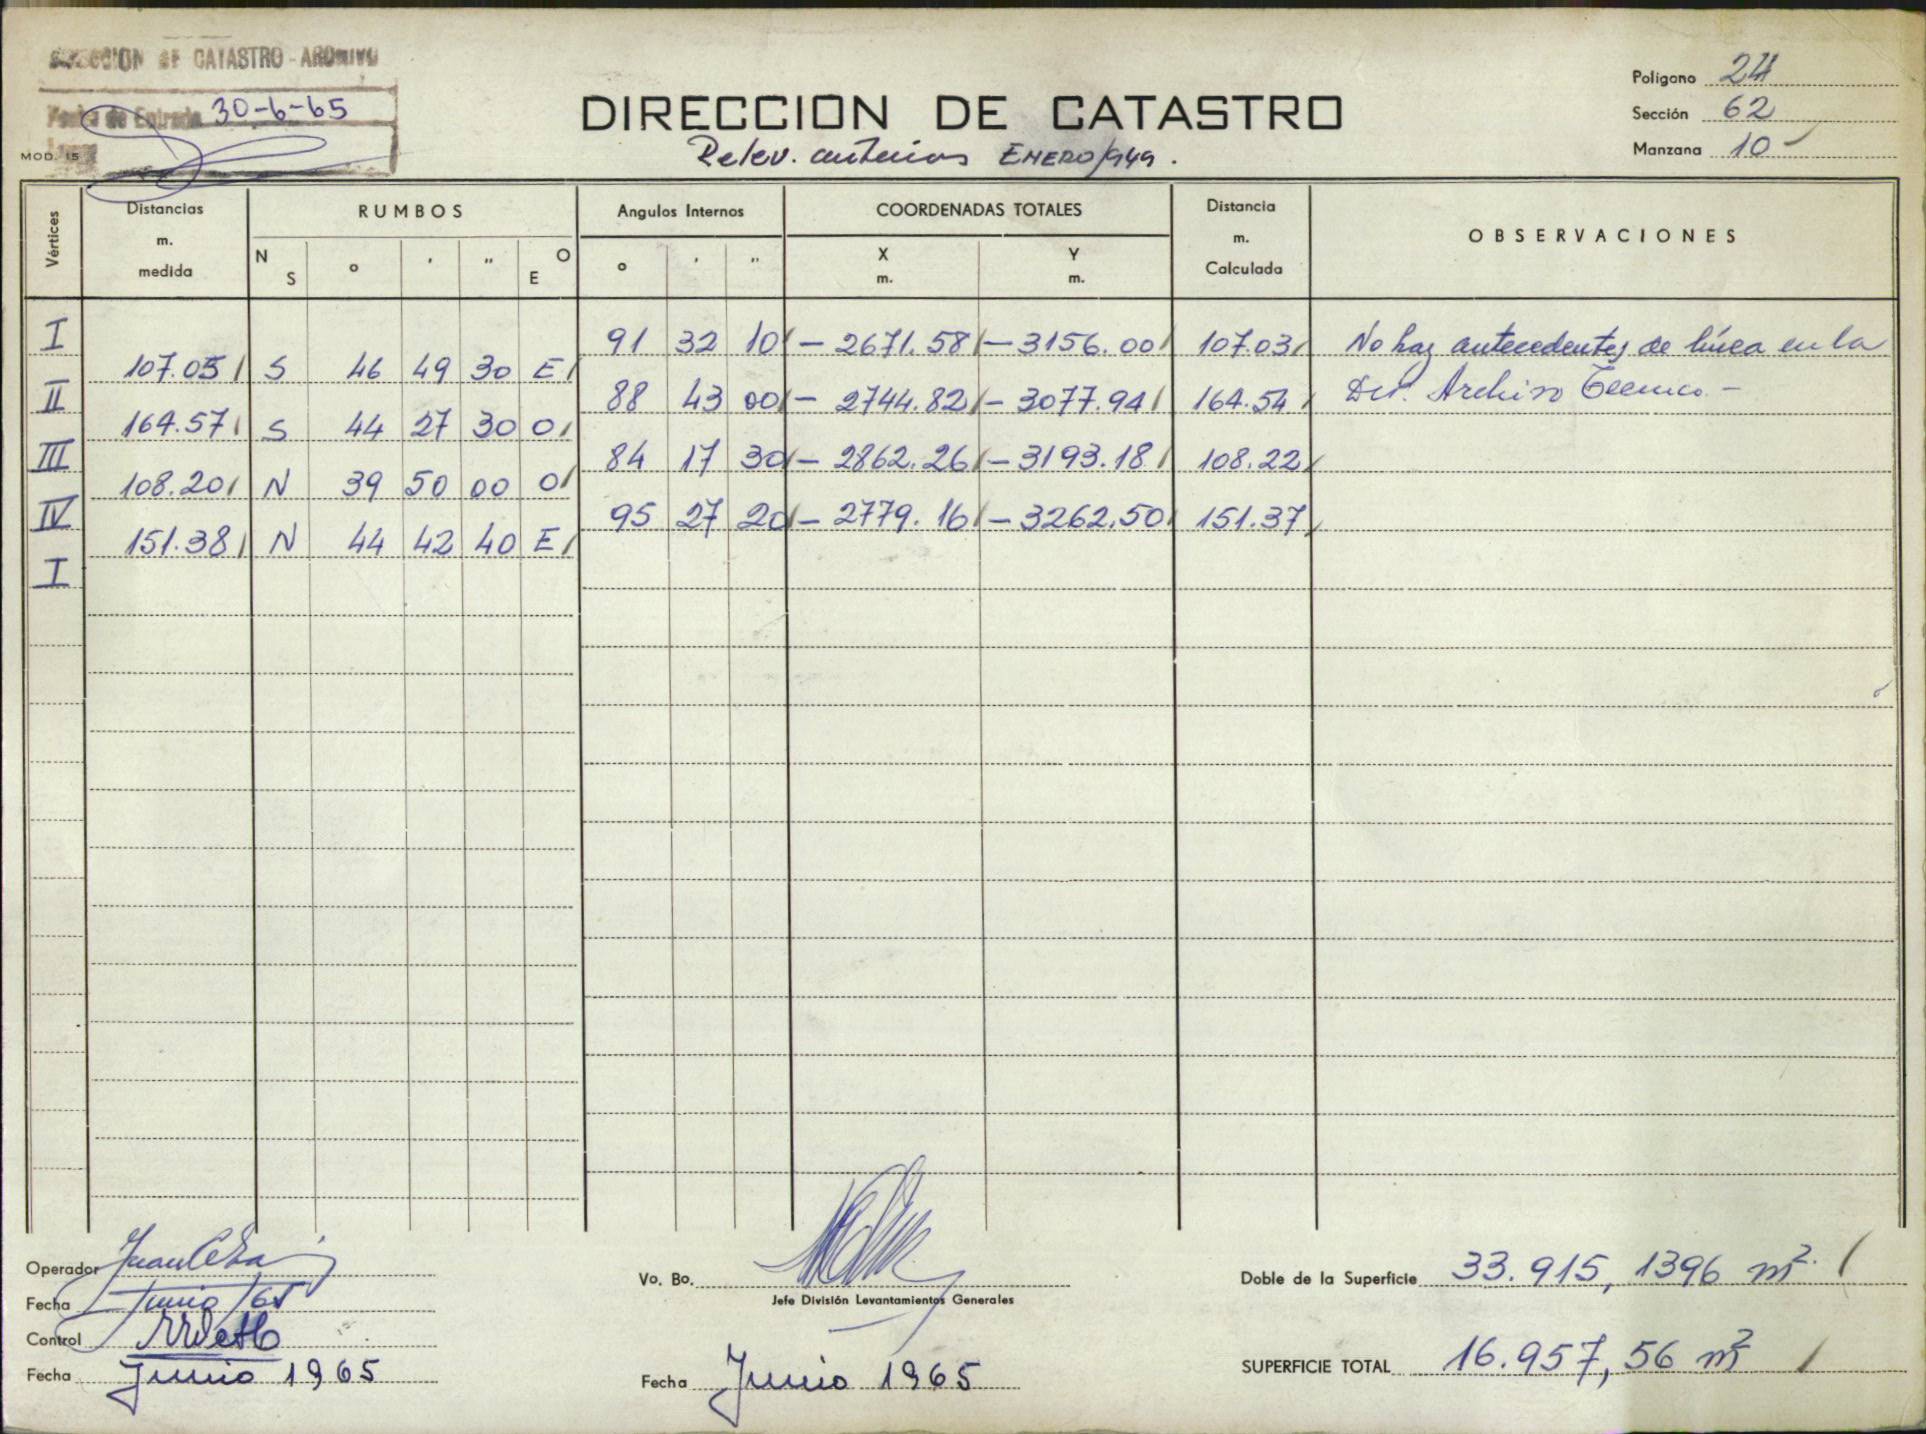 DIRECCION DE CATASTRO - ARCHIVO
Fecha de Entrada 30-6-65
MOD. 15
DIRECCION DE CATASTRO
Relev. anterior ENERO/949.
Polígono 24
Sección 62
Manzana 10
Vértices
Distancias m. medida
RUMBOS
N S ° ' " O E
Angulos Internos
° ' "
COORDENADAS TOTALES
X m. Y m.
Distancia m. Calculada
OBSERVACIONES
I 91 32 10 - 2671.58 - 3156.00 107.03 No hay antecedentes de línea en la
107.05 S 46 49 30 E
II 88 43 00 - 2744.82 - 3077.94 164.54 Archivo Técnico -
164.57 S 44 27 30 O
III 84 17 30 - 2862.26 - 3193.18 108.22
108.20 N 39 50 00 O
IV 95 27 20 - 2779.16 - 3262.50 151.37
151.38 N 44 42 40 E
I
Operador
Fecha Junio/65
Control
Fecha Junio 1965
Vo. Bo.
Jefe División Levantamientos Generales
Fecha Junio 1965
Doble de la Superficie 33.915,1396 m².
SUPERFICIE TOTAL 16.957,56 m²